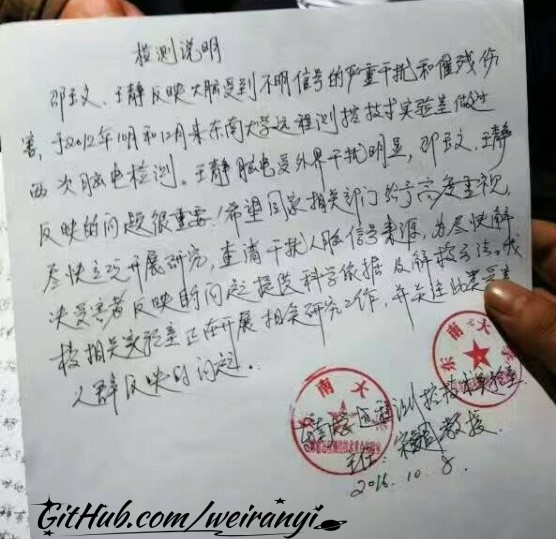 检测说明
邵玉文、王静反映大脑受到不明信号的严重干扰和摧残伤
害，于2012年10月和12月来东南大学远程测控技术实验室做过
两次脑电检测。王静脑电受外界干扰明显，邵玉文、王静
反映的问题很重要！希望国家相关部门给予高度重视，
尽快立项开展研究，查清干扰人脑信号来源，为尽快解
决受害者反映的问题提供科学依据及解救方法。我
校相关实验室正在开展相关研究工作，并关注此类受害
人群反映的问题。
东南大
东南大
远程测控技术实验室
主任：教授
2016.10.8.
GitHub.com/weiranyi